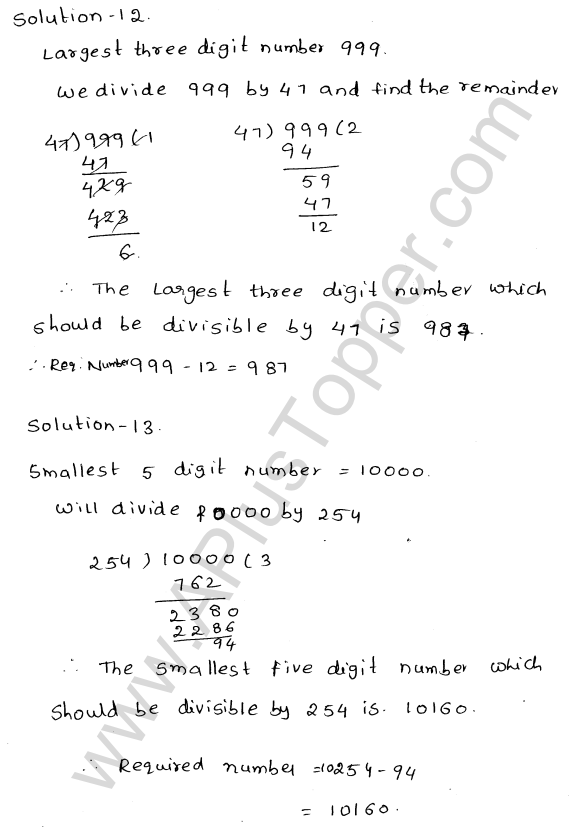 Solution-12.
Largest three digit number 999.
We divide 999 by 47 and find the remainder
47) 999 (1
47
429
423
6.
47) 999 (2
94
59
47
12
∴ The Largest three digit number which
should be divisible by 47 is 987.
∴ Req. Number 999 - 12 = 987
Solution-13.
Smallest 5 digit number = 10000.
Will divide 10000 by 254
254 ) 10000 (3
762
2380
2286
94
∴ The Smallest five digit number which
Should be divisible by 254 is. 10160.
∴ Required number = 10254 - 94
= 10160.
www.APlusTopper.com